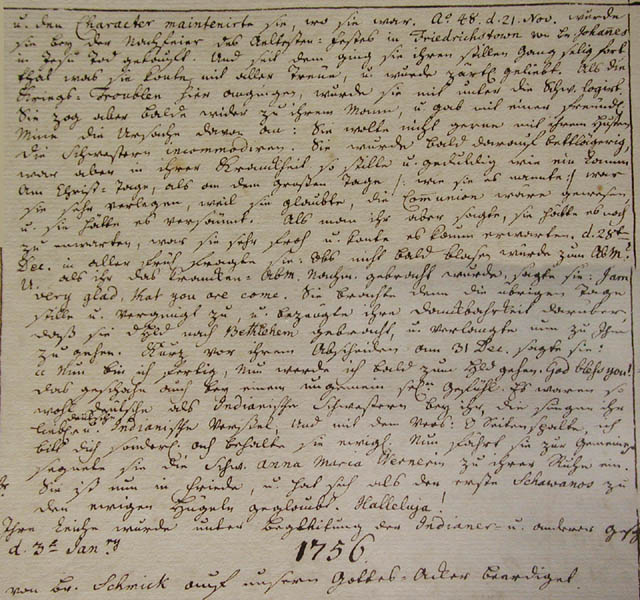 u. den Character maintenirte sie, wo sie war. Ao 48. d. 21. Nov. wurde
sie bey der Nachfeier des Aeltesten-Festes in Friedrichstown von Br. Johannes
in Jesu Tod getauft. Und seit dem ging sie ihren stillen Gang selig fort
that was sie konte mit aller Treue, u. wurde zärtl. geliebt. Als die
Kriegs-Troublen hier angingen, wurde sie mit unter die Schw. logirt.
Sie zog aber balde wider zu ihrem Mann, u. gab mit einer freundl.
Mine die Ursache davon an: Sie wolte nicht gerne mit ihrem Husten
die Schwestern incommodiren. Sie wurde bald darauf bettlägerig,
war aber in ihrer Kranckheit so stille u. gedultig wie ein Lamm
Am Christ-Tage, als an dem Grossen Tage /: wie sie es nante :/ war
sie sehr verlegen, weil sie glaubte, die Communion wäre gewesen,
u. sie hätte es versäumt. Als man ihr aber sagte, sie hätte es noch
zu erwarten, war sie sehr froh u. konte es kaum erwarten. d. 28t
Dec. in aller früh fragte sie: Obs nicht bald blasen würde zum AbM.?
U. als ihr das Krancken-AbM. Nachm. gebracht wurde, sagte sie: I am
very glad, that you are come. Sie brachte denn die übrigen Tage
stille u. vergnügt zu, u. bezeugte ihre Danckbahrkeit darüber
daß sie d. Hld nach Bethlehem gebracht, u. verlangte nun zu Ihm
zu gehen. Kurz vor ihrem Abscheiden am 31 Dec. sagte sie:
Nun bin ich fertig, Nun werde ich bald zum Hld gehen. God bless you!
das geschahe auch bey einem ungemein sel. Gefühl. Es waren so
wohl deutsche als Indianische Schwestern bey ihr, die sungen ihr
liebliche deutsche u. Indianische Versel, und mit dem Vers: O Seitenspalte, ich
bitt dich sonderl. auch behalte sie ewigl. Nun fährt sie zur Gemeine
segnete sie die Schw. Anna Maria Wernern zu ihrer Ruhe ein.
Sie ist nun in Friede, u. hat sich als den erste Schawanos zu
den ewigen Hügeln geglaubt. Halleluja!
Ihre Leiche wurde unter Begleitung der Indianer- u. anderer Gesch
d. 3t Janry
1756.
von Br. Schmick auf unsern Gottes-Acker beerdiget.